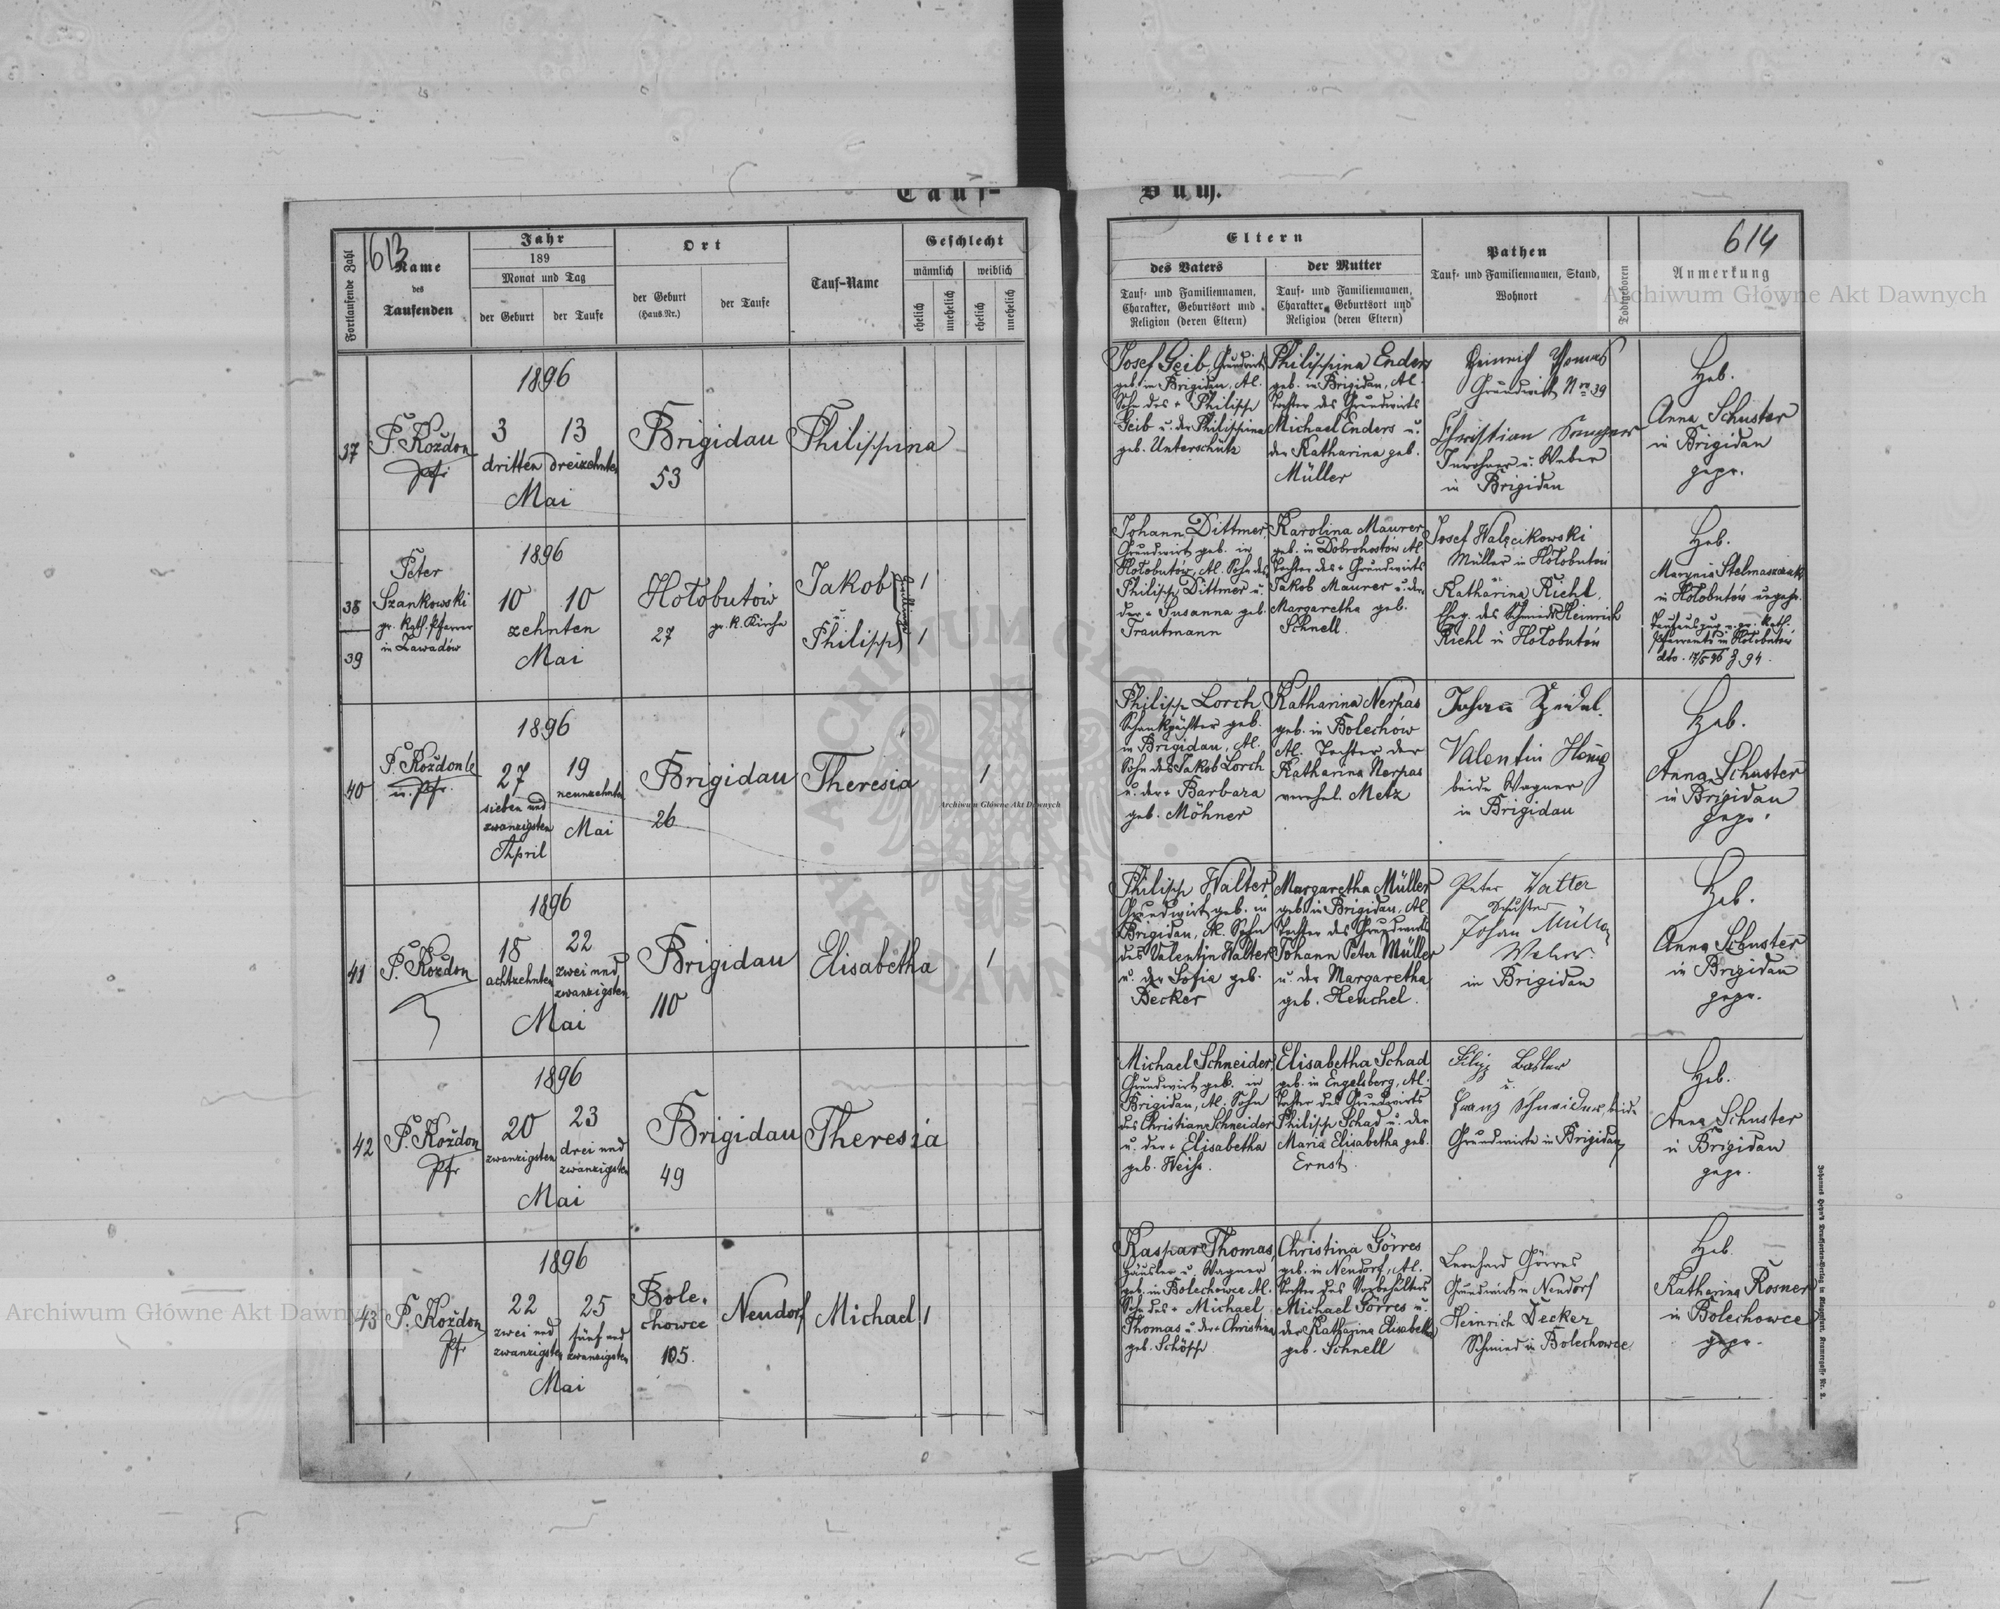 Tauf-
Buch.
613
614
Fortlaufende Zahl
Name
des
Taufenden
Jahr
189
Monat und Tag
der Geburt
der Taufe
Ort
der Geburt
(Haus.Nr.)
der Taufe
Tauf-Name
Geschlecht
männlich
weiblich
ehelich
unehelich
ehelich
unehelich
Eltern
des Vaters
der Mutter
Tauf- und Familiennamen,
Charakter, Geburtsort und
Religion (deren Eltern)
Tauf- und Familiennamen,
Charakter, Geburtsort und
Religion (deren Eltern)
Pathen
Tauf- und Familiennamen, Stand,
Wohnort
Todtgeboren
Anmerkung
37
P. Koždon
Pfr
1896
3
13
dritten
dreizehnten
Mai
Brigidau
53
Philippina
Josef Geib, Grundwirt
geb. in Brigidau, Al.
Sohn des + Philipp
Geib u. der Philippina
geb. Unterschütz
Philippina Enders
geb. in Brigidau, Al.
Tochter des Grundwirts
Michael Enders u.
der Katharina geb.
Müller
Heinrich Thomas
Grundwirt Nro 39
Christian
u. Weber
in Brigidau
Heb.
Anna Schuster
in Brigidau
gepr.
38
39
Peter
Szankowski
gr. kath. Pfarrer
in Zawadów
1896
10
10
zehnten
Mai
Hołobutów
27
gr. k. Kirche
Jakob
u.
Philipp
Zwillinge
1
1
Johann Dittmer,
Grundwirt geb. in
Hołobutów, Al. Sohn des
Philipp Dittmer u.
der + Susanna geb.
Trautmann
Karolina Maurer
geb. in Dobrohostów Al.
Tochter des + Grundwirts
Jakob Maurer u. der
Margaretha geb.
Schnell.
Josef Walzcikowski
Müller in Hołobutów
u.
Katharina Riehl,
Ehg. des Schmieds Heinrich
Riehl in Hołobutów
Heb.
Marynia Stelmaszczuk
in Hołobutów ungepr.
gr. kath.
Pfarramts in Hołobutów
dto. 17/5 96 Z. 94.
40
P. Koždon
m. Pfr.
1896
27
19
sieben und
zwanzigsten
April
neunzehnten
Mai
Brigidau
26
Theresia
1
Philipp Lorch
Schankpächter geb.
in Brigidau, Al.
Sohn des Jakob Lorch
u. der + Barbara
geb. Möhner
Katharina Nerpas
geb. in Bolechów
Al. Tochter der
Katharina Nerpas
verehel. Metz
Johann Seidel.
Valentin
beide Wagner
in Brigidau
Heb.
Anna Schuster
in Brigidau
gepr.
41
P. Koždon
1896
18
22
achtzehnten
zwei und
zwanzigsten
Mai
Brigidau
110
Elisabetha
1
Philipp Walter
Grundwirt geb. in
Brigidau, Al. Sohn
des Valentin Walter
u. der Sofie geb.
Becker
Margaretha Müller
geb. in Brigidau, Al.
Tochter des Grundwirts
Johann Peter Müller
u. der Margaretha
geb. Henchel.
Peter Walter
Schuster
Johan Müller
Weber.
in Brigidau
Heb.
Anna Schuster
in Brigidau
gepr.
42
P. Koždon
Pfr
1896
20
23
zwanzigsten
drei und
zwanzigsten
Mai
Brigidau
49
Theresia
Michael Schneider,
Grundwirt geb. in
Brigidau, Al. Sohn
des Christian Schneider
u. der + Elisabetha
geb. Weiss.
Elisabetha Schad
geb. in Engelsberg, Al.
Tochter des Grundwirts
Philipp Schad u. der
Maria Elisabetha geb.
Ernst.
Filipp
u.
Franz Schneider, beide
Grundwirte in Brigidau
Heb.
Anna Schuster
in Brigidau
gepr.
43
P. Koždon
Pfr
1896
22
25
zwei und
zwanzigsten
fünf und
zwanzigsten
Mai
Bole-
chowce
105.
Neudorf
Michael
1
Kaspar Thomas,
Häusler u. Wagner
geb. in Bolechowce Al.
Sohn des + Michael
Thomas u. der + Christina
geb. Schöpp
Christina Görres
geb. in Neudorf, Al.
Tochter des Vorbehälters
Michael Görres u.
der Katharina Elisabetha
geb. Schnell
Leonhard Görres
Grundwirt in Neudorf
Heinrich Decker
Schmied in Bolechowce
Heb.
Katharina Rosner
in Bolechowce
gepr.
Archiwum Główne Akt Dawnych
Archiwum Główne Akt Dawnych
Archiwum Główne Akt Dawnych
ARCHIWUM GŁÓWNE AKT DAWNYCH